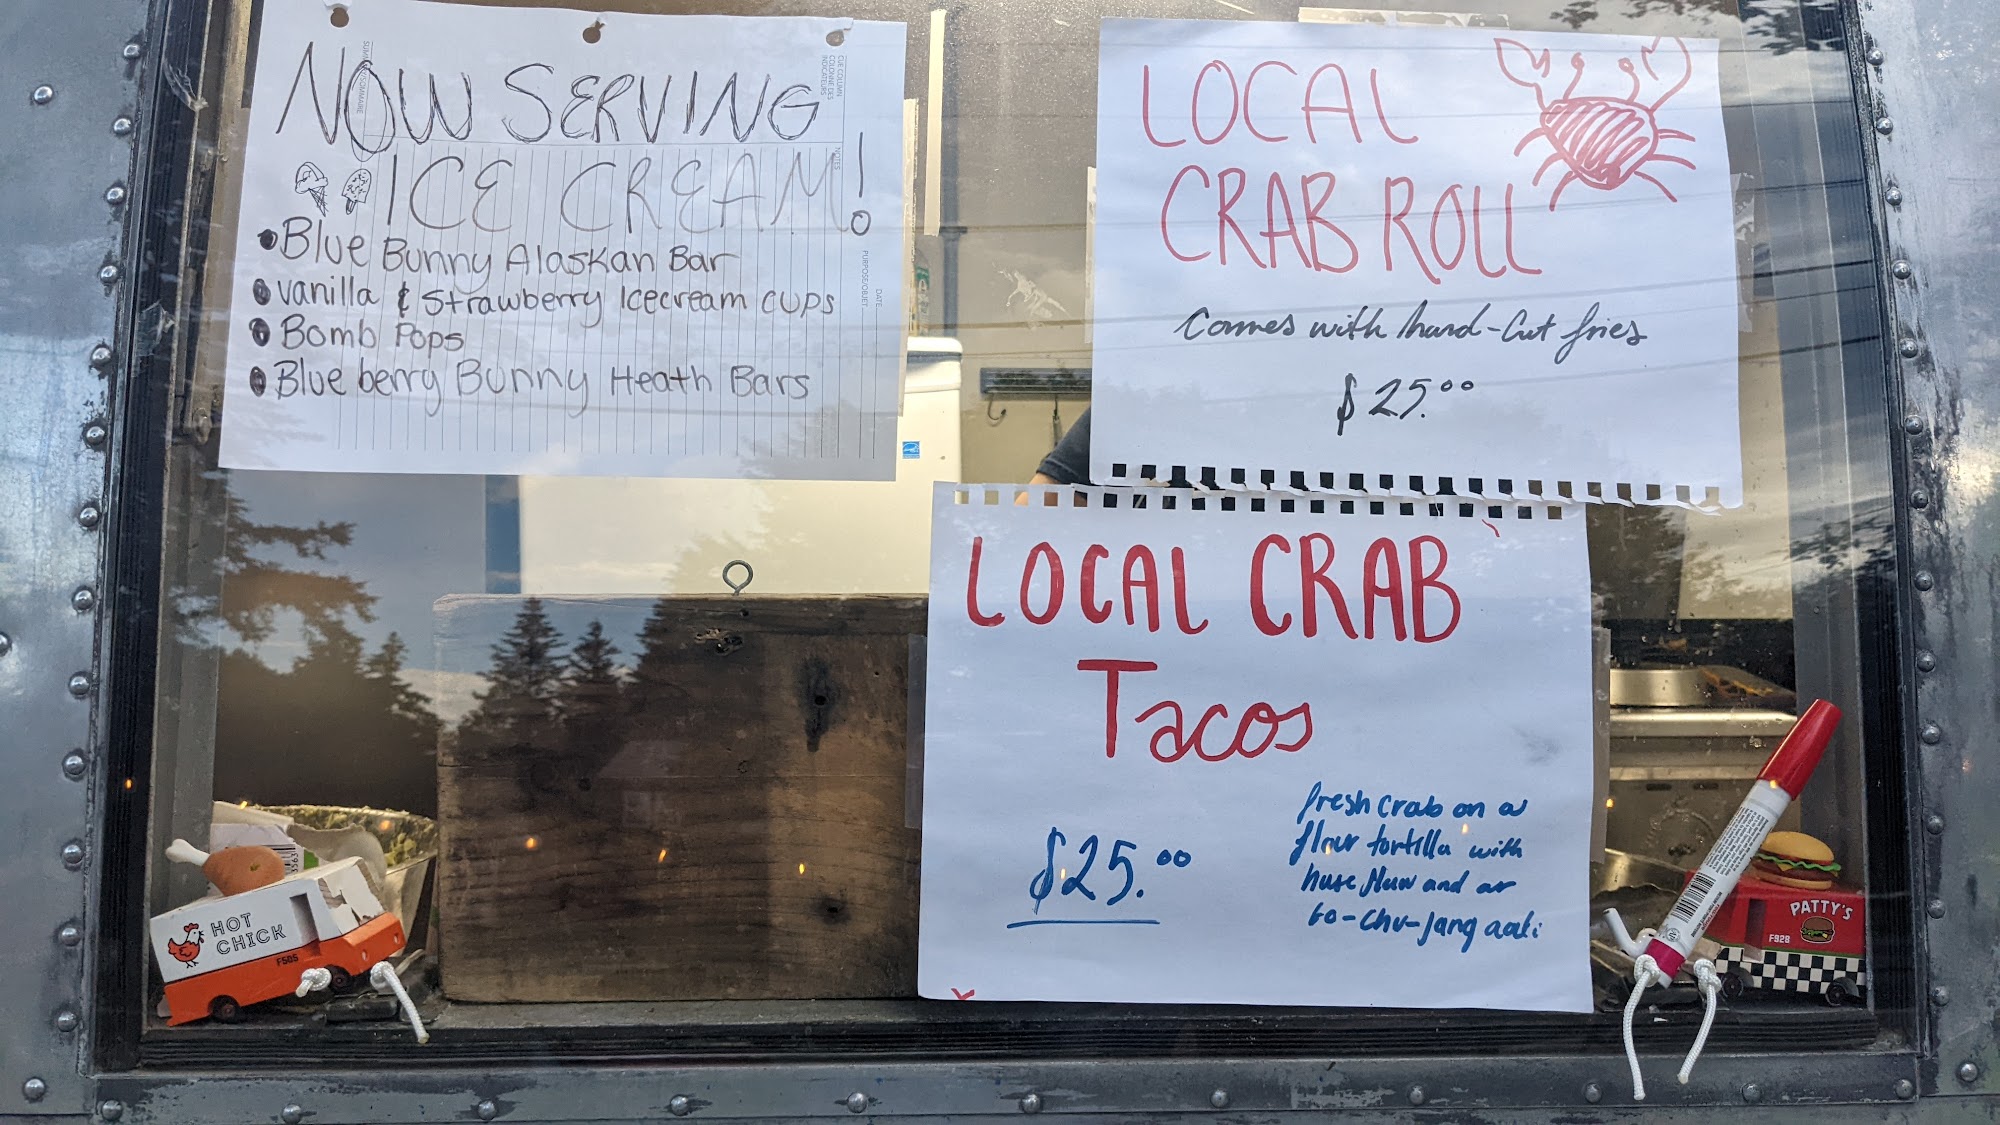 NOW SERVING
ICE CREAM!
Blue Bunny Alaskan Bar
vanilla & Strawberry Icecream cups
Bomb Pops
Blue berry Bunny Heath Bars
LOCAL
CRAB ROLL
Comes with hand-Cut fries
$25.00
LOCAL CRAB
Tacos
$25.00
fresh crab on a
flour tortilla with
house slaw and a
Go-chu-jang aoli
HOT
CHICK
F585
PATTY'S
F928
DATE
PURPOSE/OBJET
NOTES